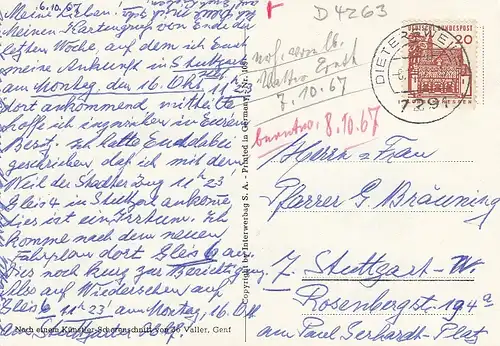 6.10.67
Meine Lieben!
Meinen Kartengruß von Ende der
letzten Woche, auf dem ich Euch
meine Ankunft in Stuttgart
am Montag, den 16. Okt. 11 h 23
dort ankommend mitteilte
hoffe ich inzwischen in Euren
Besitz. Ich hatte Euch dabei
geschrieben daß ich mit dem
Weil der Stadter Zug 11 h 23
Gleis 4 in Stuttgart ankomme
dies ist ein Irrtum. Ich
komme nach dem neuen
Fahrplan dort Gleis 6 an.
Dies noch kurz zur Berichtigung
Alles auf Wiedersehen auf
Gleis 6 11 h 23 am Montag, 16. Okt
Nach einem Künstler-Scherenschnitt von Jo Valler, Genf
Copyright by Interwerbag S. A. - Printed in Germany
D 4263
7.10.67
beantw. 8.10.67
DEUTSCHE BUNDESPOST
20
7291
Herrn u. Frau
Pfarrer G. Bräuning
7 Stuttgart-W.
Rosenbergstr. 194 a
am Paul Gerhardt-Platz